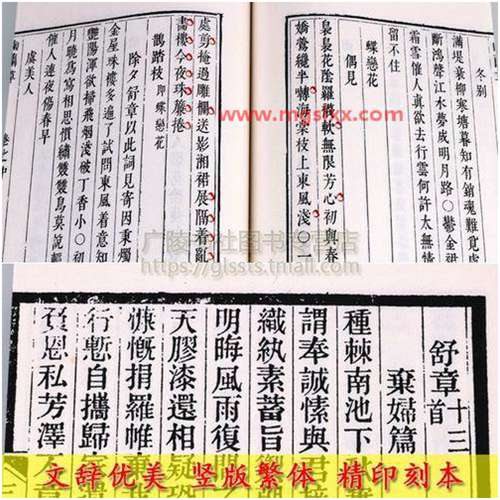 冬别
滿堤衰柳寒塘暮知有銷魂難覓處
斷鴻聲江水夢成明月路○鬱金裙
雪催人真欲去行雲何許太無情
留不住
蝶戀花
偶見
裊裊花陰羅襪軟無限芳心初與春
嬌鶯纔半轉海棠枝上東風淺○一
處剪掩過雕欄送影湘裙展隔着亂
書樓今夜珠簾捲
鵲踏枝 即蝶戀花
除夕舒章以此詞見寄因秉燭
金屋珠樓多遍了試問東風着意知
艷陽渾欲掃飛烟淺破丁香小○初
月曉為寫相思慣繡雙雙鳥莫說輕
催人連夜傷春早
虞美人
卷之中
www.mgslxx.com
https://glssts.tmall.com
舒章 十三首
棄婦篇
種棘南池下
謂奉誠愫與君
織紈素蓄旨
明晦風雨復
天膠漆還相疑
慷慨捐羅帷
行慙自攜歸
恩私芳澤
文辞优美 竖版繁体 精印刻本